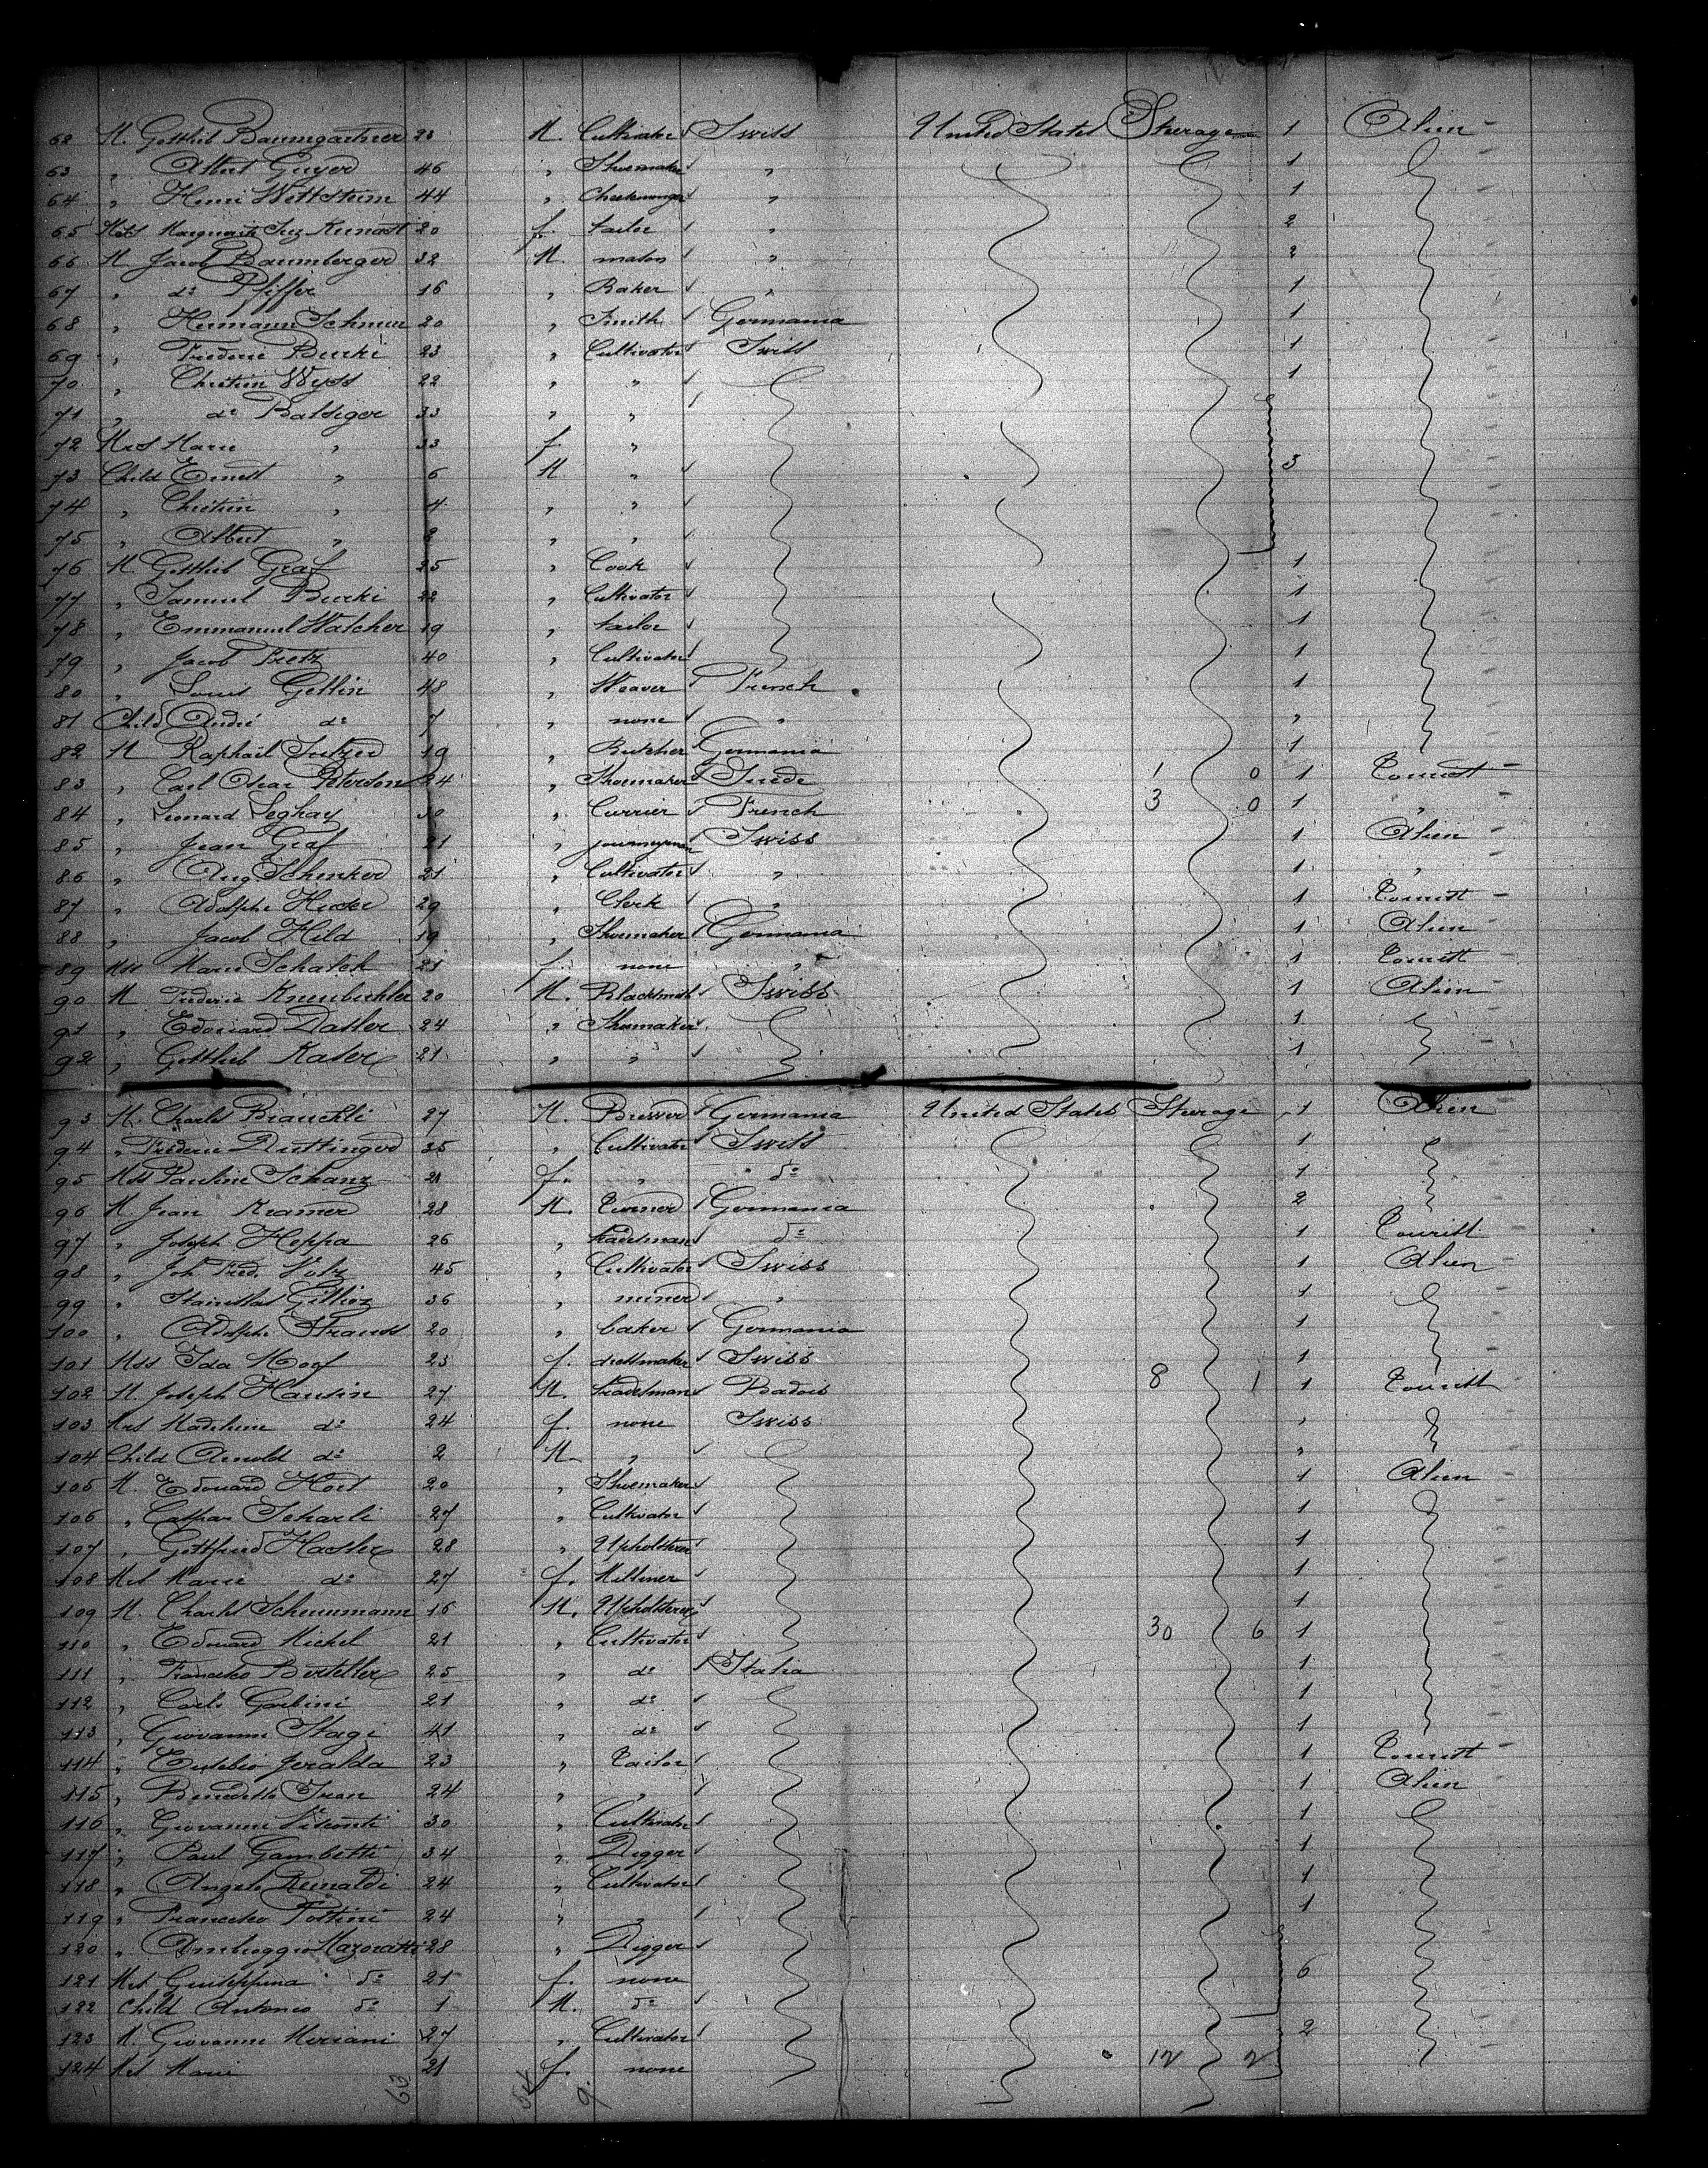 62 M. Gottlieb Baumgartner 23 M. Cultivator Swiss United States Sterage 1 Alien
63 " Albert Guyer 46 " Shoemaker " 1
64 " Henri Wettstein 44 " " 1
65 Marguerite 20 f. tailor " 2
66 M Jacob Baumberger 32 M. mason " 2
67 " do Pfiffer 16 " Baker " 1
68 " Hermann 20 " Smith Germania 1
69 " Frederic Burki 23 " Cultivator Swiss 1
70 " Chretien Wyss 22 " " 1
71 " do Balsiger 33 " "
72 Mrs Marie " 33 f. "
73 Child Ernest " 6 M. " 3
74 " Chretien " 4 " "
75 " Albert " " "
76 M Gottlieb Graf 25 " Cook 1
77 " Samuel Burki 22 " Cultivator 1
78 " Emmanuel Watcher 19 " tailor 1
79 " Jacob Fretz 40 " Cultivator 1
80 " Louis Gellin 48 " Weaver French 1
81 Child André do 7 " none " "
82 M Raphaël Sulzer 19 " Butcher Germania 1
83 " Carl Oscar Peterson 24 " Shoemaker Suede 1 0 1 Tourist
84 " Leonard Leghay 30 " Currier French 3 0 1 "
85 " Jean Graf 21 " Swiss 1 Alien
86 " Aug. Schenker 21 " Cultivator " 1 "
87 " Adolphe 29 " Clerk " 1 Tourist
88 " Jacob Hild 19 " Shoemaker Germania 1 Alien
89 Mss Marie Schalch 21 f. none " 1 Tourist
90 M Frederic Kneubuhler 20 M. Blacksmith Swiss 1 Alien
91 " Edouard Dasler 24 " Shomaker 1
92 " Gottlieb Kaser 21 " " 1
93 M. Charles Brauchli 27 M. Brewer Germania United States Sterage 1 Alien
94 " Frederic Ruttinger 35 " Cultivator Swiss 1
95 Mss Pauline Schanz 21 f. " do 1
96 M Jean Kramer 28 M. Turner Germania 2
97 " Joseph Heppa 26 " tradesman do 1 Tourist
98 " Joh. Fred. Volz 45 " Cultivator Swiss 1 Alien
99 " Stanislas Gillioz 36 " miner " 1
100 " Adolphe Strauss 20 " baker Germania 1
101 Mss Ida Moof 23 f. dressmaker Swiss 1
102 M. Joseph Hausin 27 M. tradesman Badois 8 1 1 Tourist
103 Mrs Madeleine do 24 f. none Swiss "
104 Child Arnold do 2 M. " "
105 M. Edouard Host 20 " Shoemaker 1 Alien
106 " Caspar Scharli 27 " Cultivator 1
107 " Gottfried Hasler 28 " Upholsterer 1
108 Mrs Marie do 27 f. Milliner 1
109 M. Charles Schuumann 16 M. Upholsterer 1
110 " Edouard Michel 21 " Cultivator 30 6 1
111 " Francesco 25 " do Italia 1
112 " Carlo Garbini 21 " do 1
113 " Giovanni Stagi 41 " do 1
114 " Eusebio Jeralda 23 " Tailor 1 Tourist
115 " Benedetto 24 " " 1 Alien
116 " Giovanni Visconti 30 " Cultivator 1
117 " Paul Gambetti 34 " Digger 1
118 " Angelo Reinaldi 24 " Cultivator 1
119 " Francesco 24 " " 1
120 " Ambroggio Mazoratti 28 " Digger
121 Mrs Guiseppina do 21 f. none 6
122 Child Antonio do 1 M. do
123 M. Giovanni Meriani 27 " Cultivator 2
124 Mrs Marie 21 f. none 12 2
63 54 9